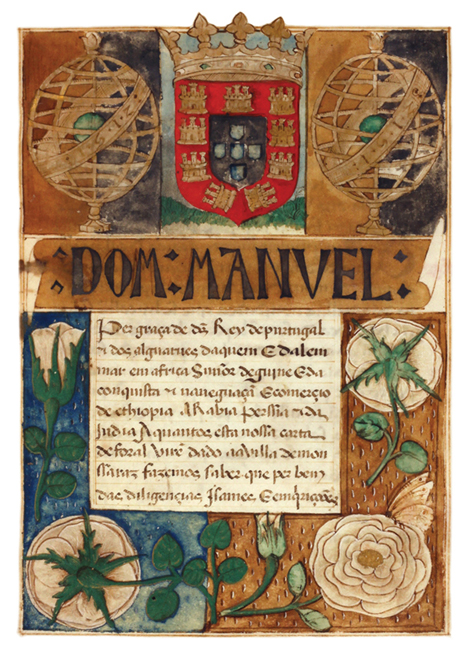 : DOM : MANVEL :
Per graça de d̃s Rey de purtugal
& dos alguarues daquem E dalem
mar em africa Señor de guine E da
conquista & naueguaçã E comercio
de ethiopia ARabia persia & da
Jndia A quantos esta nossa carta
de foral virẽ dado aa villa de mon
ssaraz fazemos saber que per bem
das diligençias, Isames, E emquiriçoões